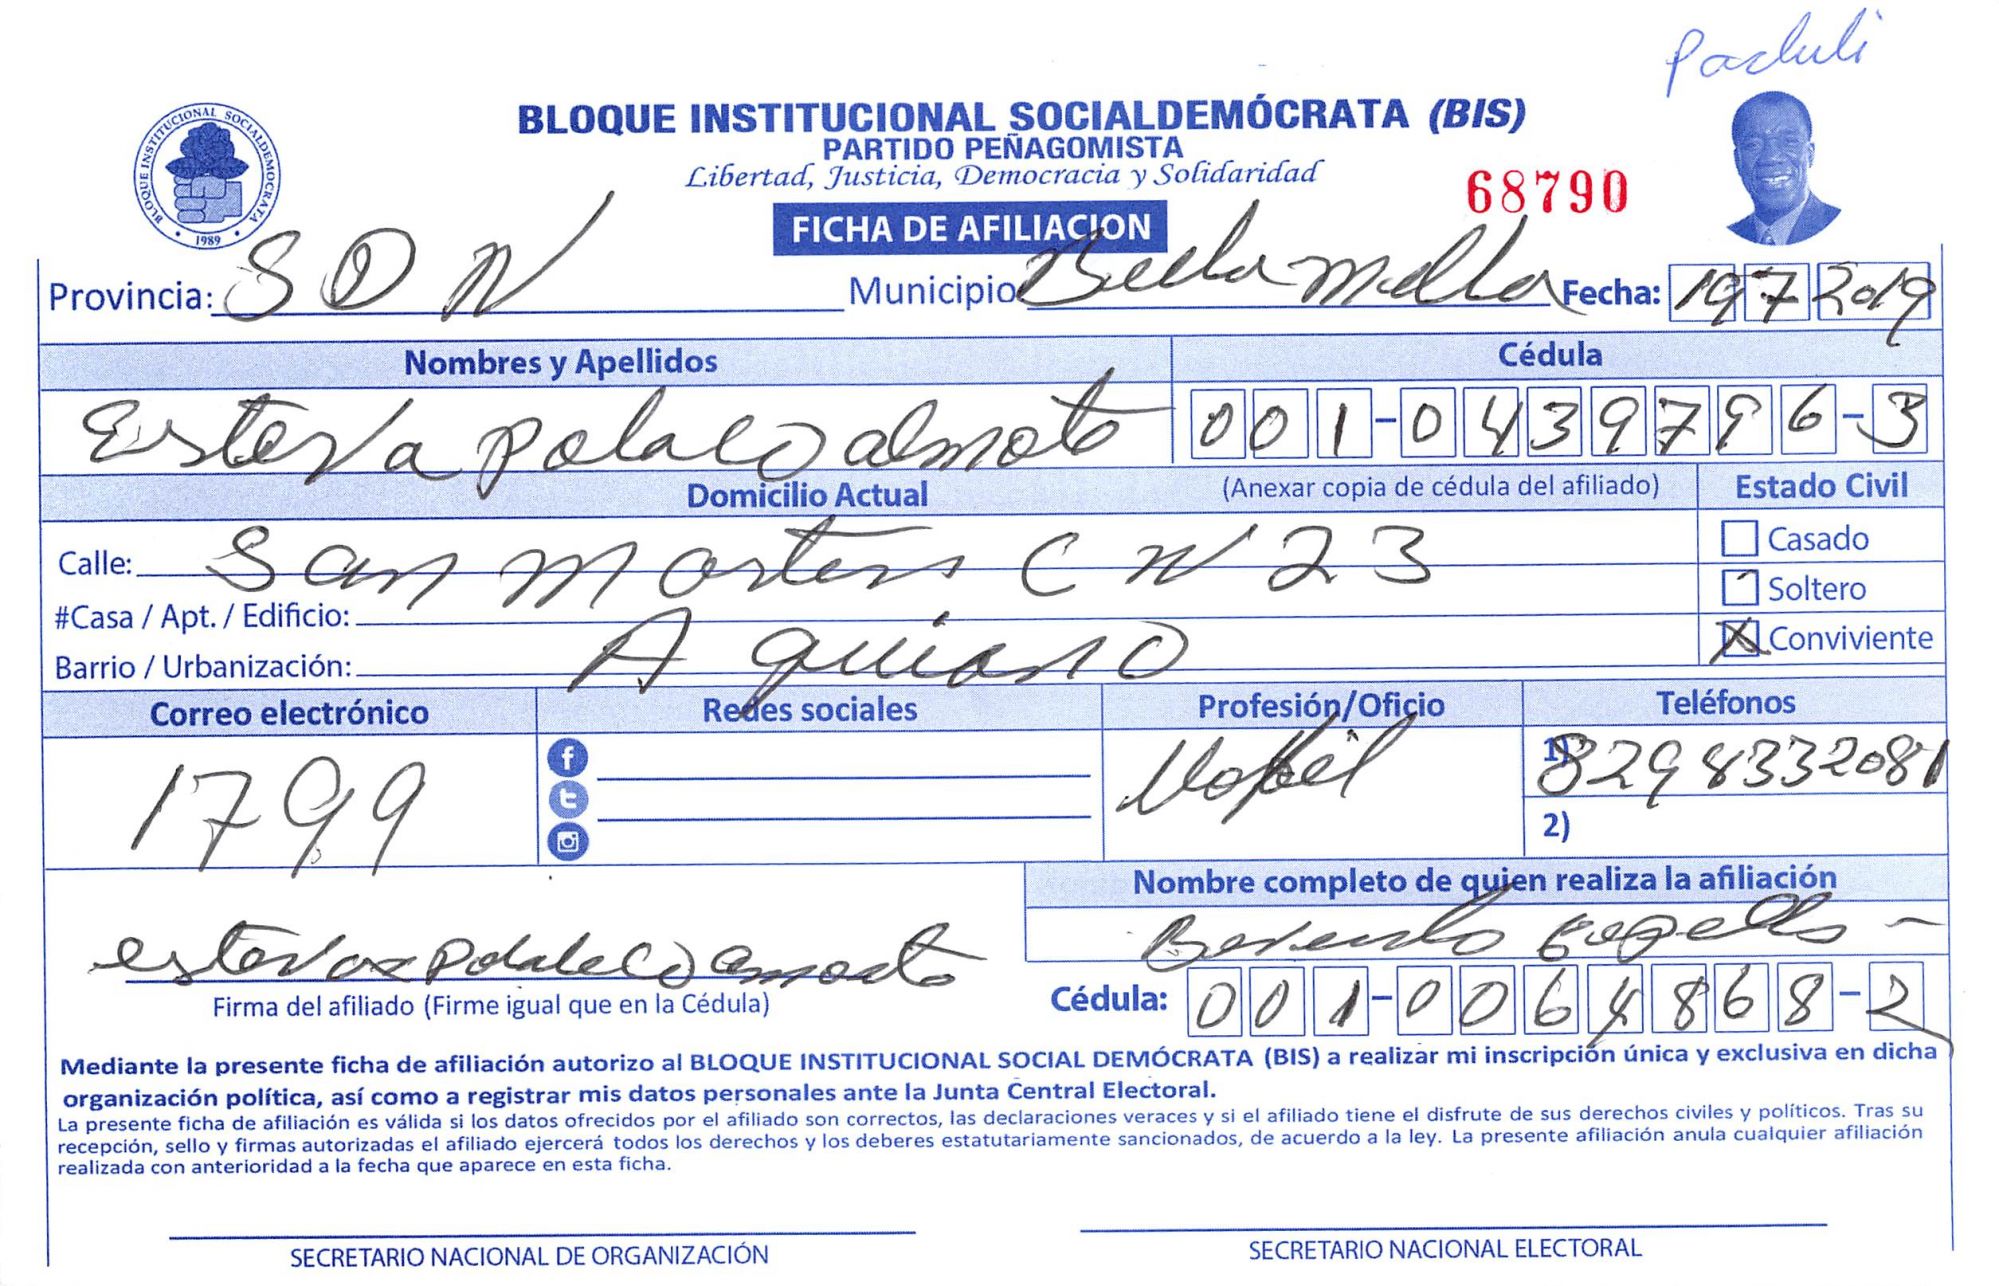 BLOQUE INSTITUCIONAL SOCIALDEMÓCRATA (BIS)
PARTIDO PEÑAGOMISTA
Libertad, Justicia, Democracia y Solidaridad
68790
BLOQUE INSTITUCIONAL SOCIALDEMOCRATA
1989
FICHA DE AFILIACION
Provincia: SDN Municipio Mella Fecha: 19 7 2019
Nombres y Apellidos Cédula
polaco 001-0439796-3
Domicilio Actual (Anexar copia de cédula del afiliado) Estado Civil
Calle: San C N 23 Casado
#Casa / Apt. / Edificio: Soltero
Barrio / Urbanización: X Conviviente
Correo electrónico Redes sociales Profesión/Oficio Teléfonos
1799 1) 8298332081
2)
Nombre completo de quien realiza la afiliación
Firma del afiliado (Firme igual que en la Cédula) Cédula: 001-0064868-2
Mediante la presente ficha de afiliación autorizo al BLOQUE INSTITUCIONAL SOCIAL DEMÓCRATA (BIS) a realizar mi inscripción única y exclusiva en dicha
organización política, así como a registrar mis datos personales ante la Junta Central Electoral.
La presente ficha de afiliación es válida si los datos ofrecidos por el afiliado son correctos, las declaraciones veraces y si el afiliado tiene el disfrute de sus derechos civiles y políticos. Tras su
recepción, sello y firmas autorizadas el afiliado ejercerá todos los derechos y los deberes estatutariamente sancionados, de acuerdo a la ley. La presente afiliación anula cualquier afiliación
realizada con anterioridad a la fecha que aparece en esta ficha.
SECRETARIO NACIONAL DE ORGANIZACIÓN SECRETARIO NACIONAL ELECTORAL